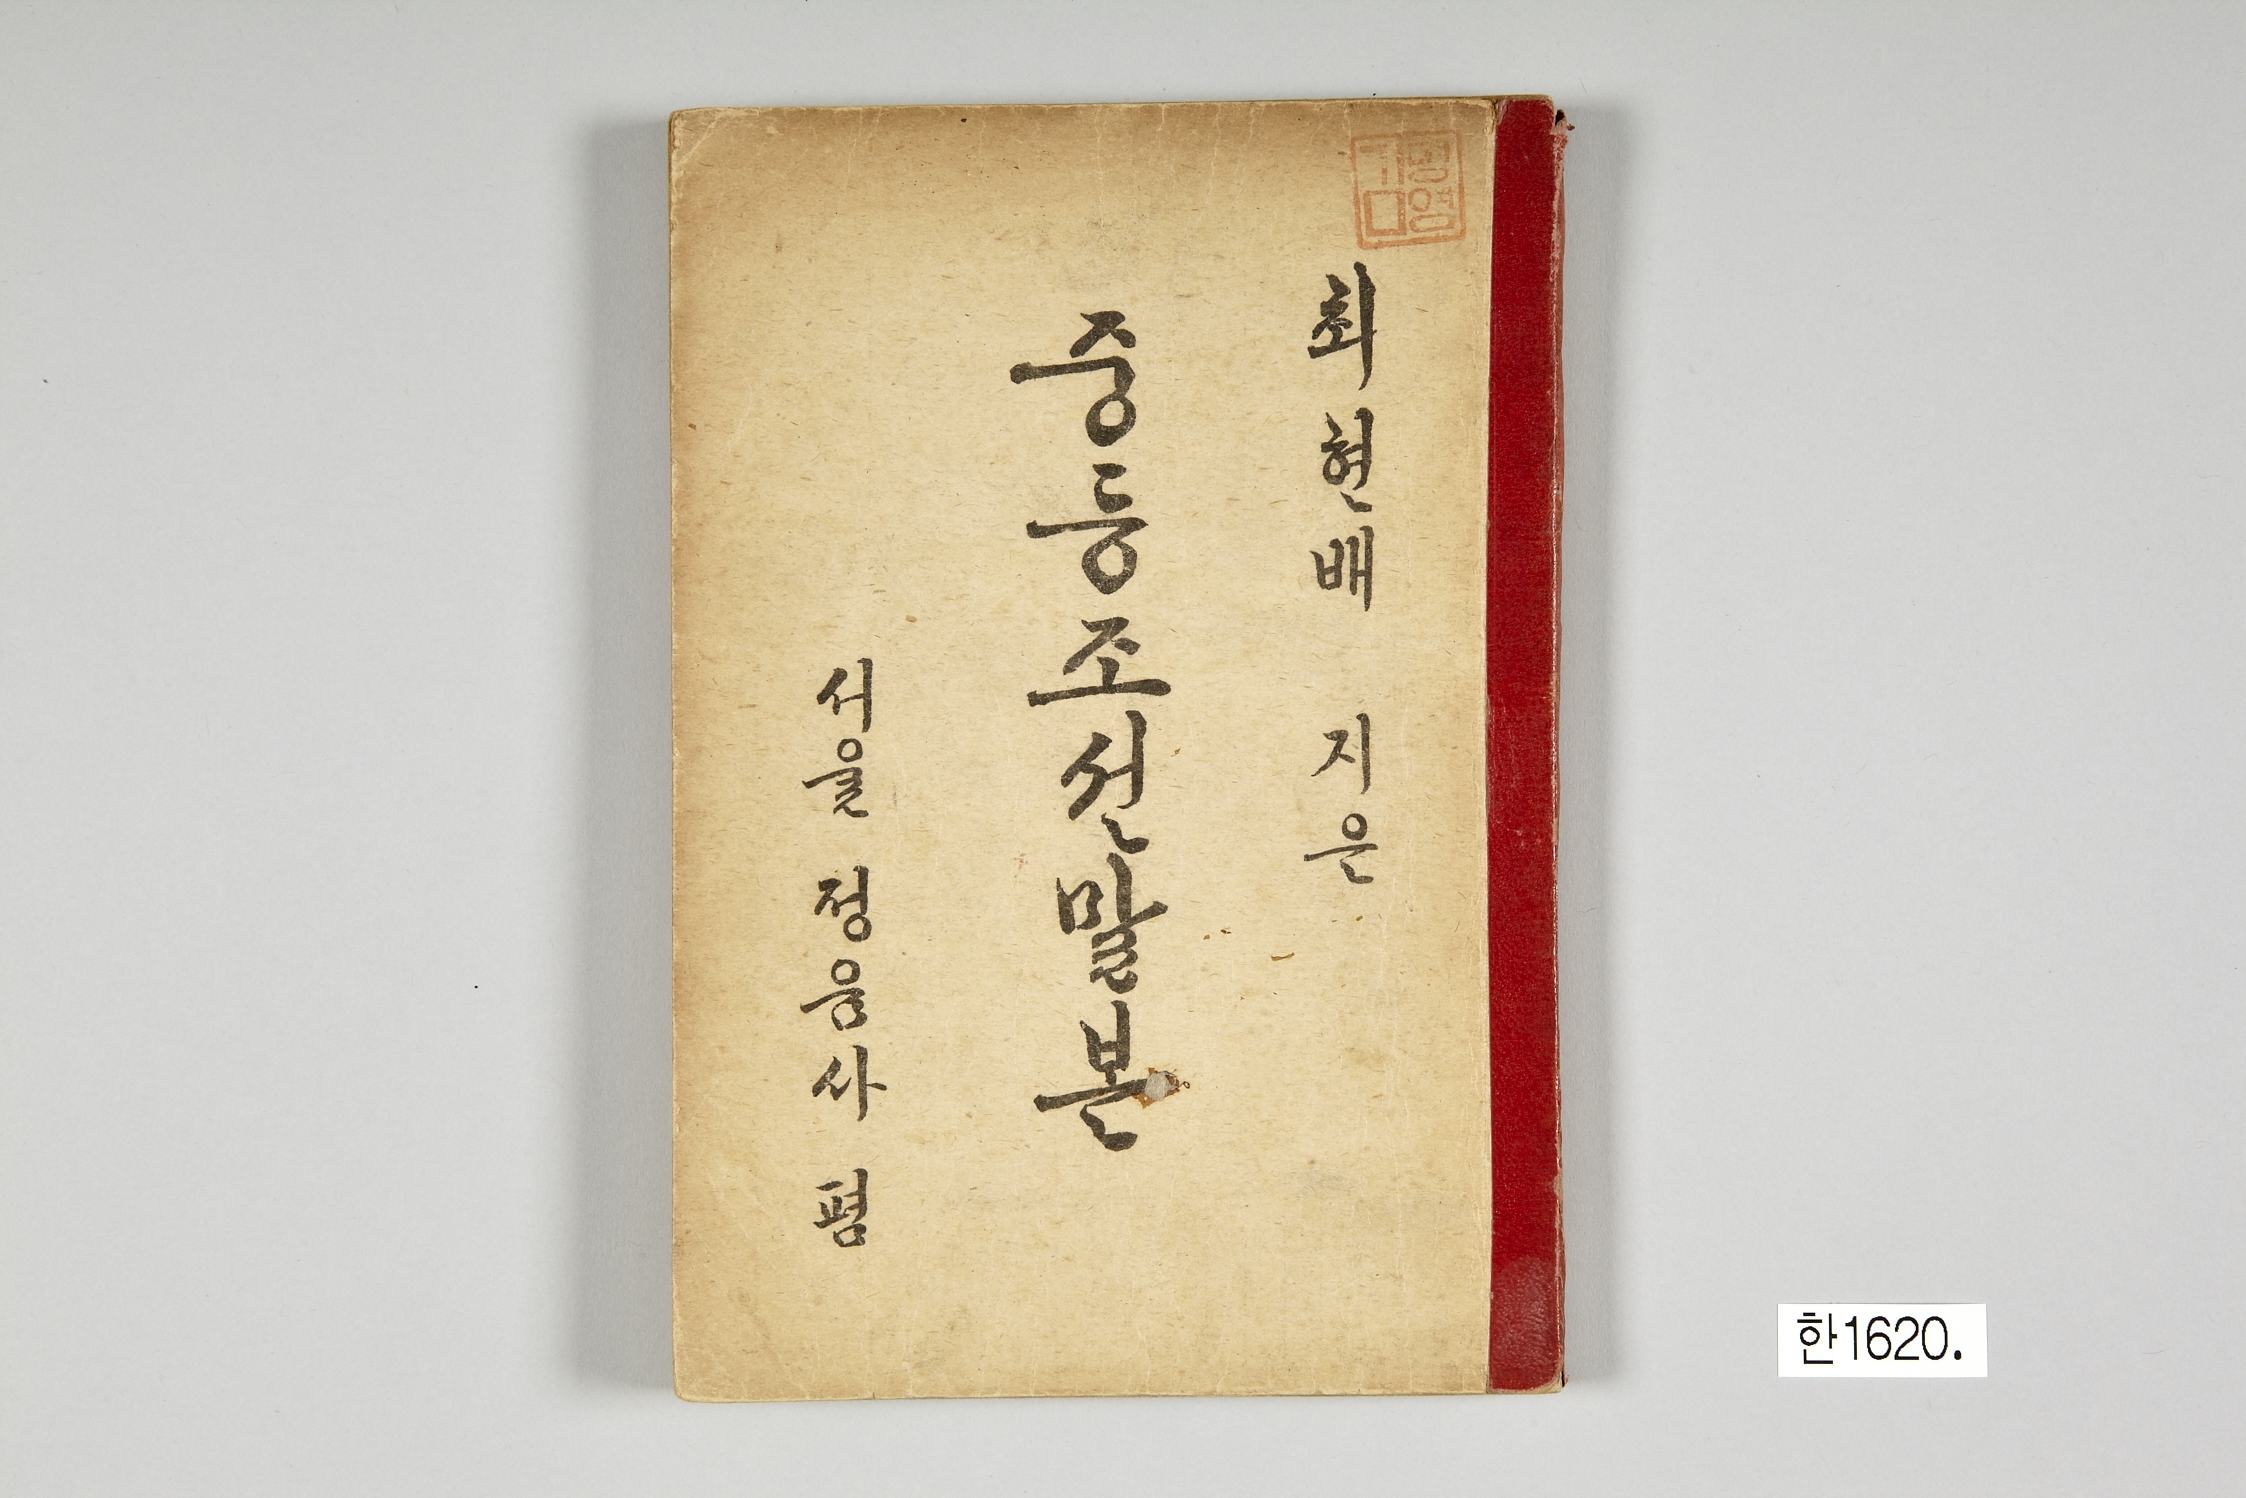 최현배 지은
중등조선말본
서울 정음사 펴
한1620.